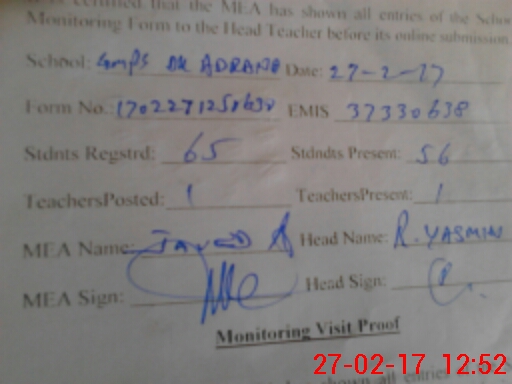 certified that the MEA has shown all entries of the School
Monitoring Form to the Head Teacher before its online submission
School: GMPS DK ADRANA Date: 27-2-17
Form No.: EMIS 37330638
Stdnts Regstrd: 65 Stdndts Present: 56
TeachersPosted: 1 TeachersPresent: 1
MEA Name: JAVED A Head Name: R. YASMIN
MEA Sign: Head Sign:
Monitoring Visit Proof
shown all entries
27-02-17 12:52